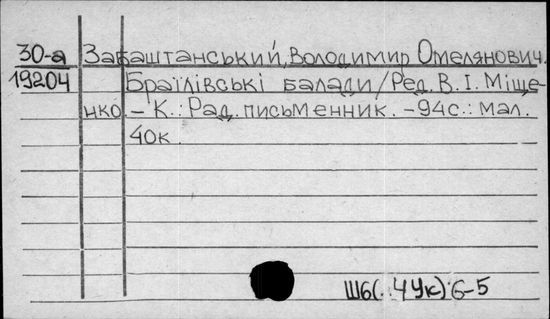 30-а Забаштанський, Володимир Омелянович.
19204 Браїлівські балади / Ред. В. І. Міще-
нко – К.: Рад. письменник. – 94с.: мал.
40к.
Ш6(..4Ук)6-5